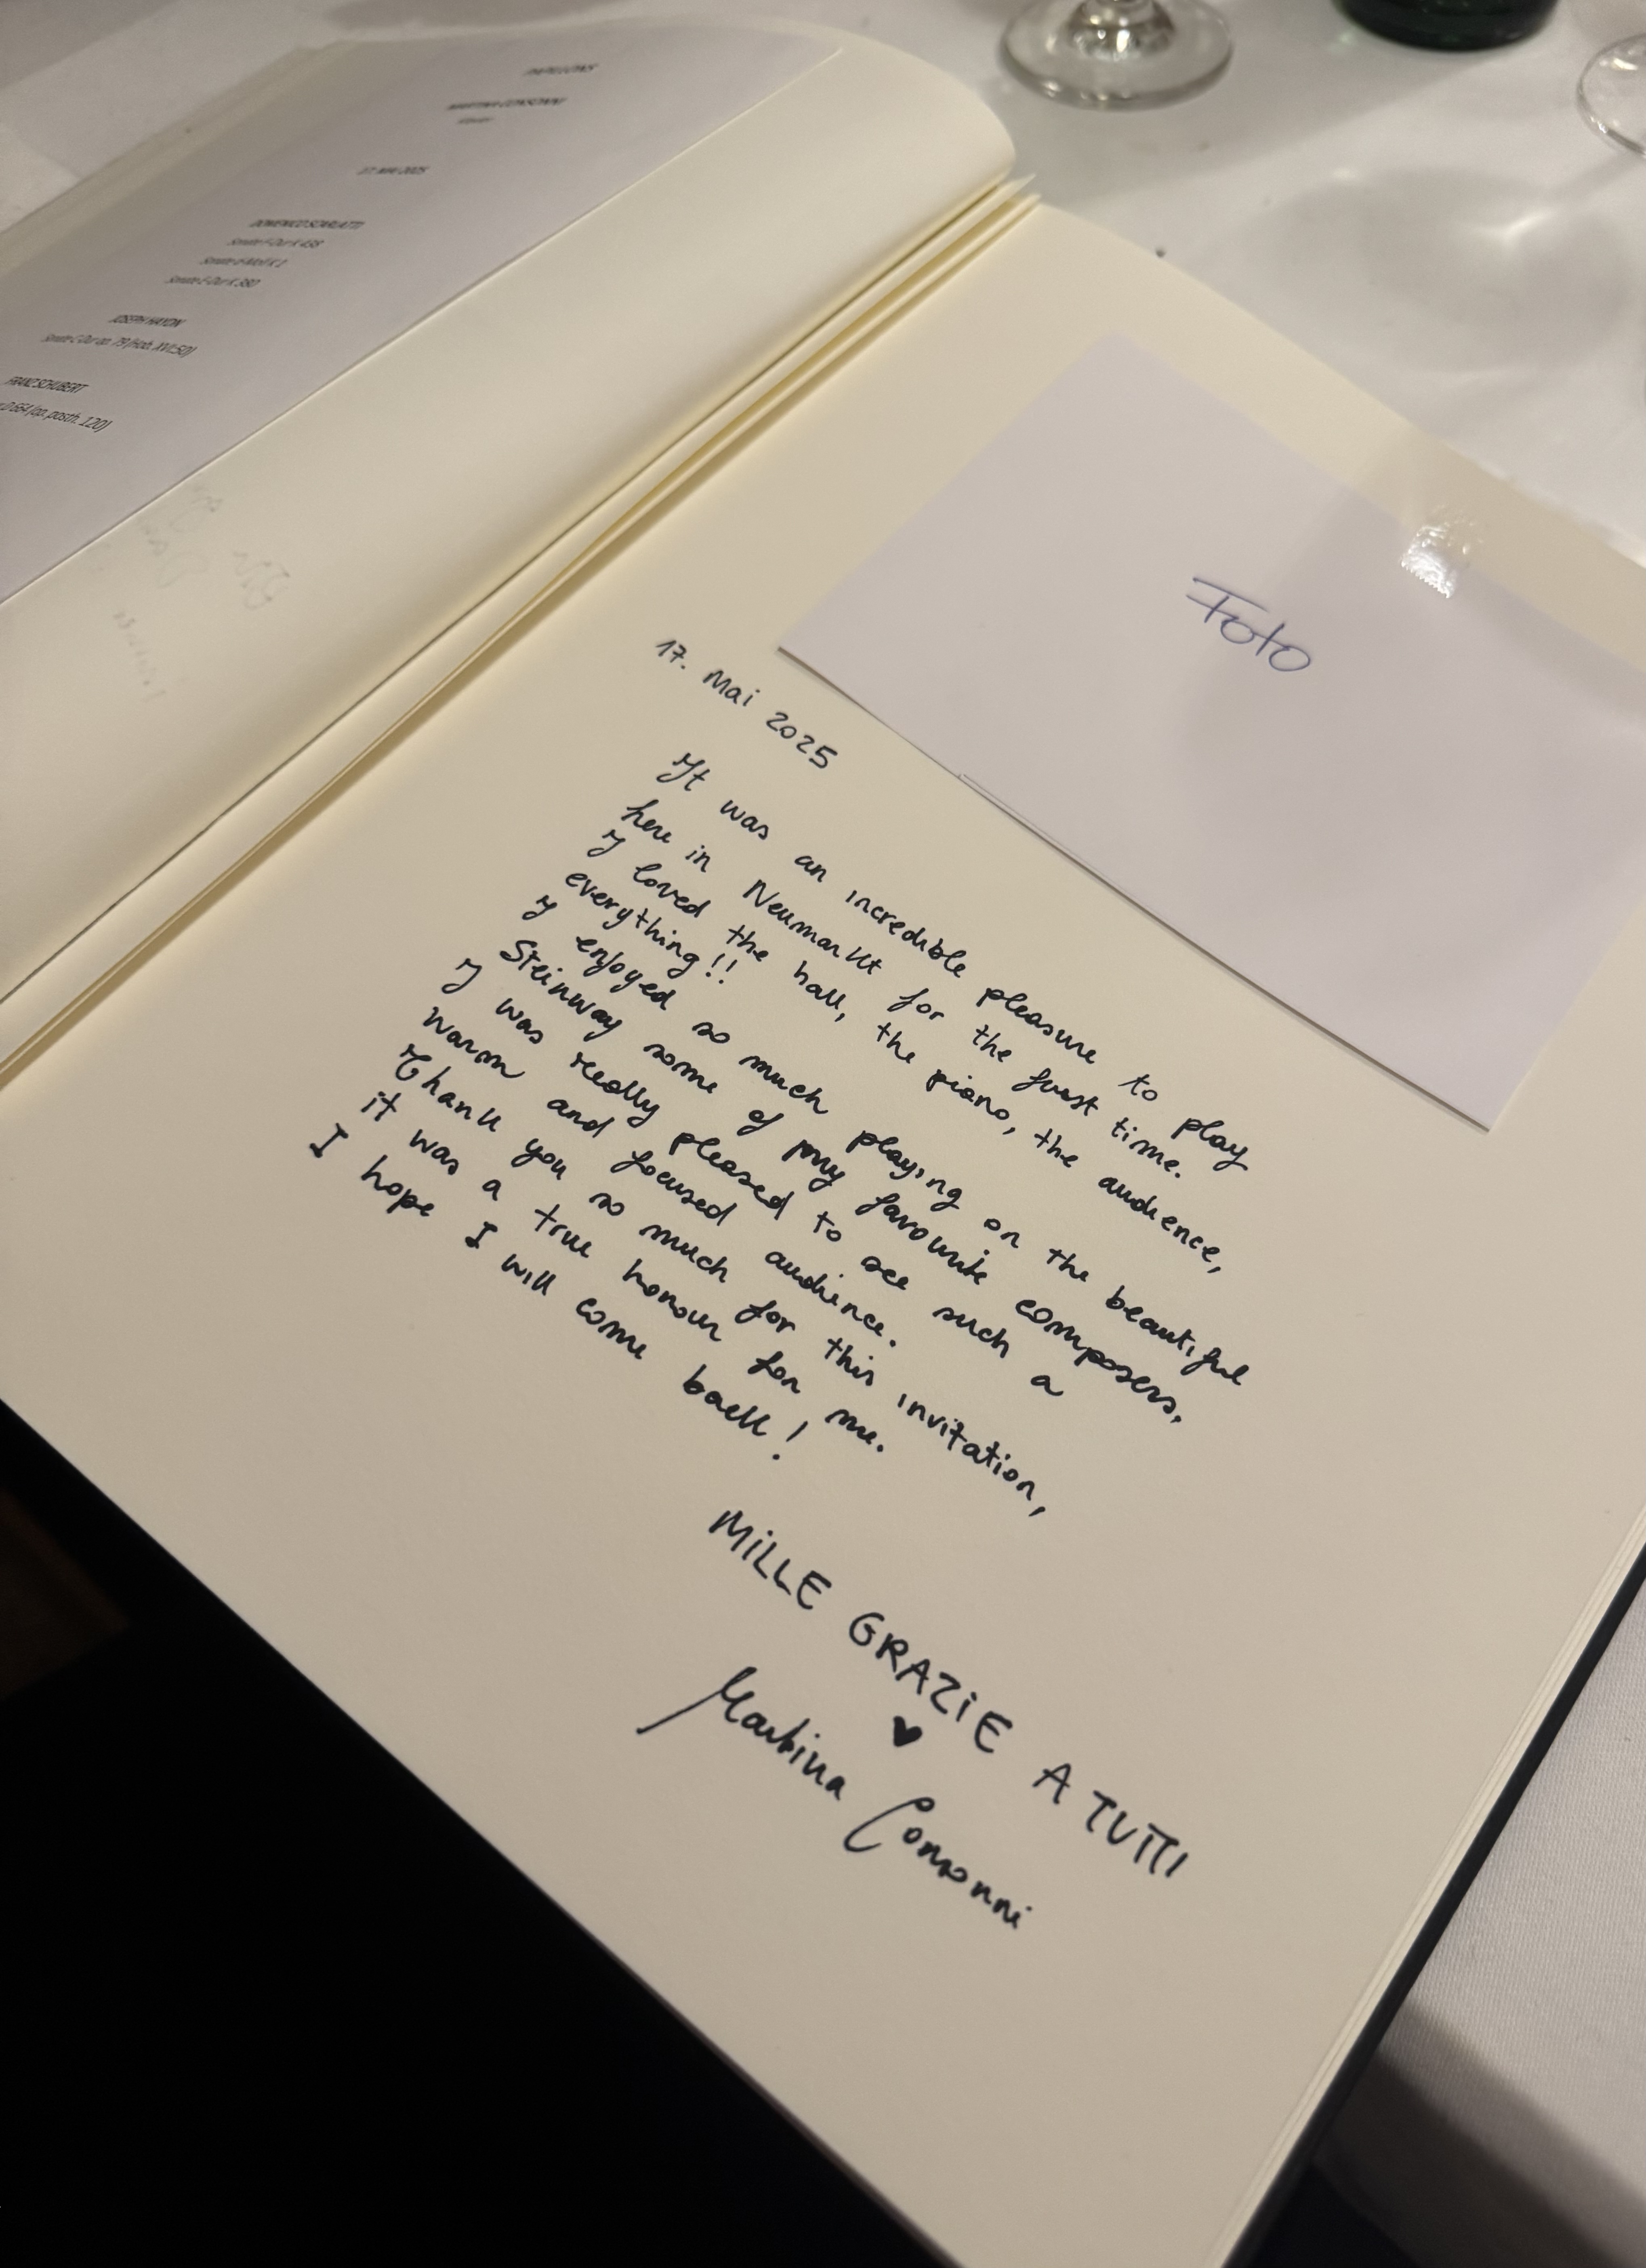 PAPILLONS
MARTINA CONSONNI
Klavier
17. MAI 2025
DOMENICO SCARLATTI
Sonate F-Dur K 438
Sonate d-Moll K 1
Sonate E-Dur K 380
JOSEPH HAYDN
Sonate C-Dur op. 79 (Hob. XVI:50)
FRANZ SCHUBERT
D 664 (op. posth. 120)
Foto
17. Mai 2025
It was an incredible pleasure to play
here in Neumarkt for the first time.
I loved the hall, the piano, the audience,
everything!!
I enjoyed so much playing on the beautiful
Steinway some of my favourite composers,
I was really pleased to see such a
warm and focused audience.
Thank you so much for this invitation,
it was a true honour for me.
I hope I will come back!
MILLE GRAZIE A TUTTI
♥
Martina Consonni